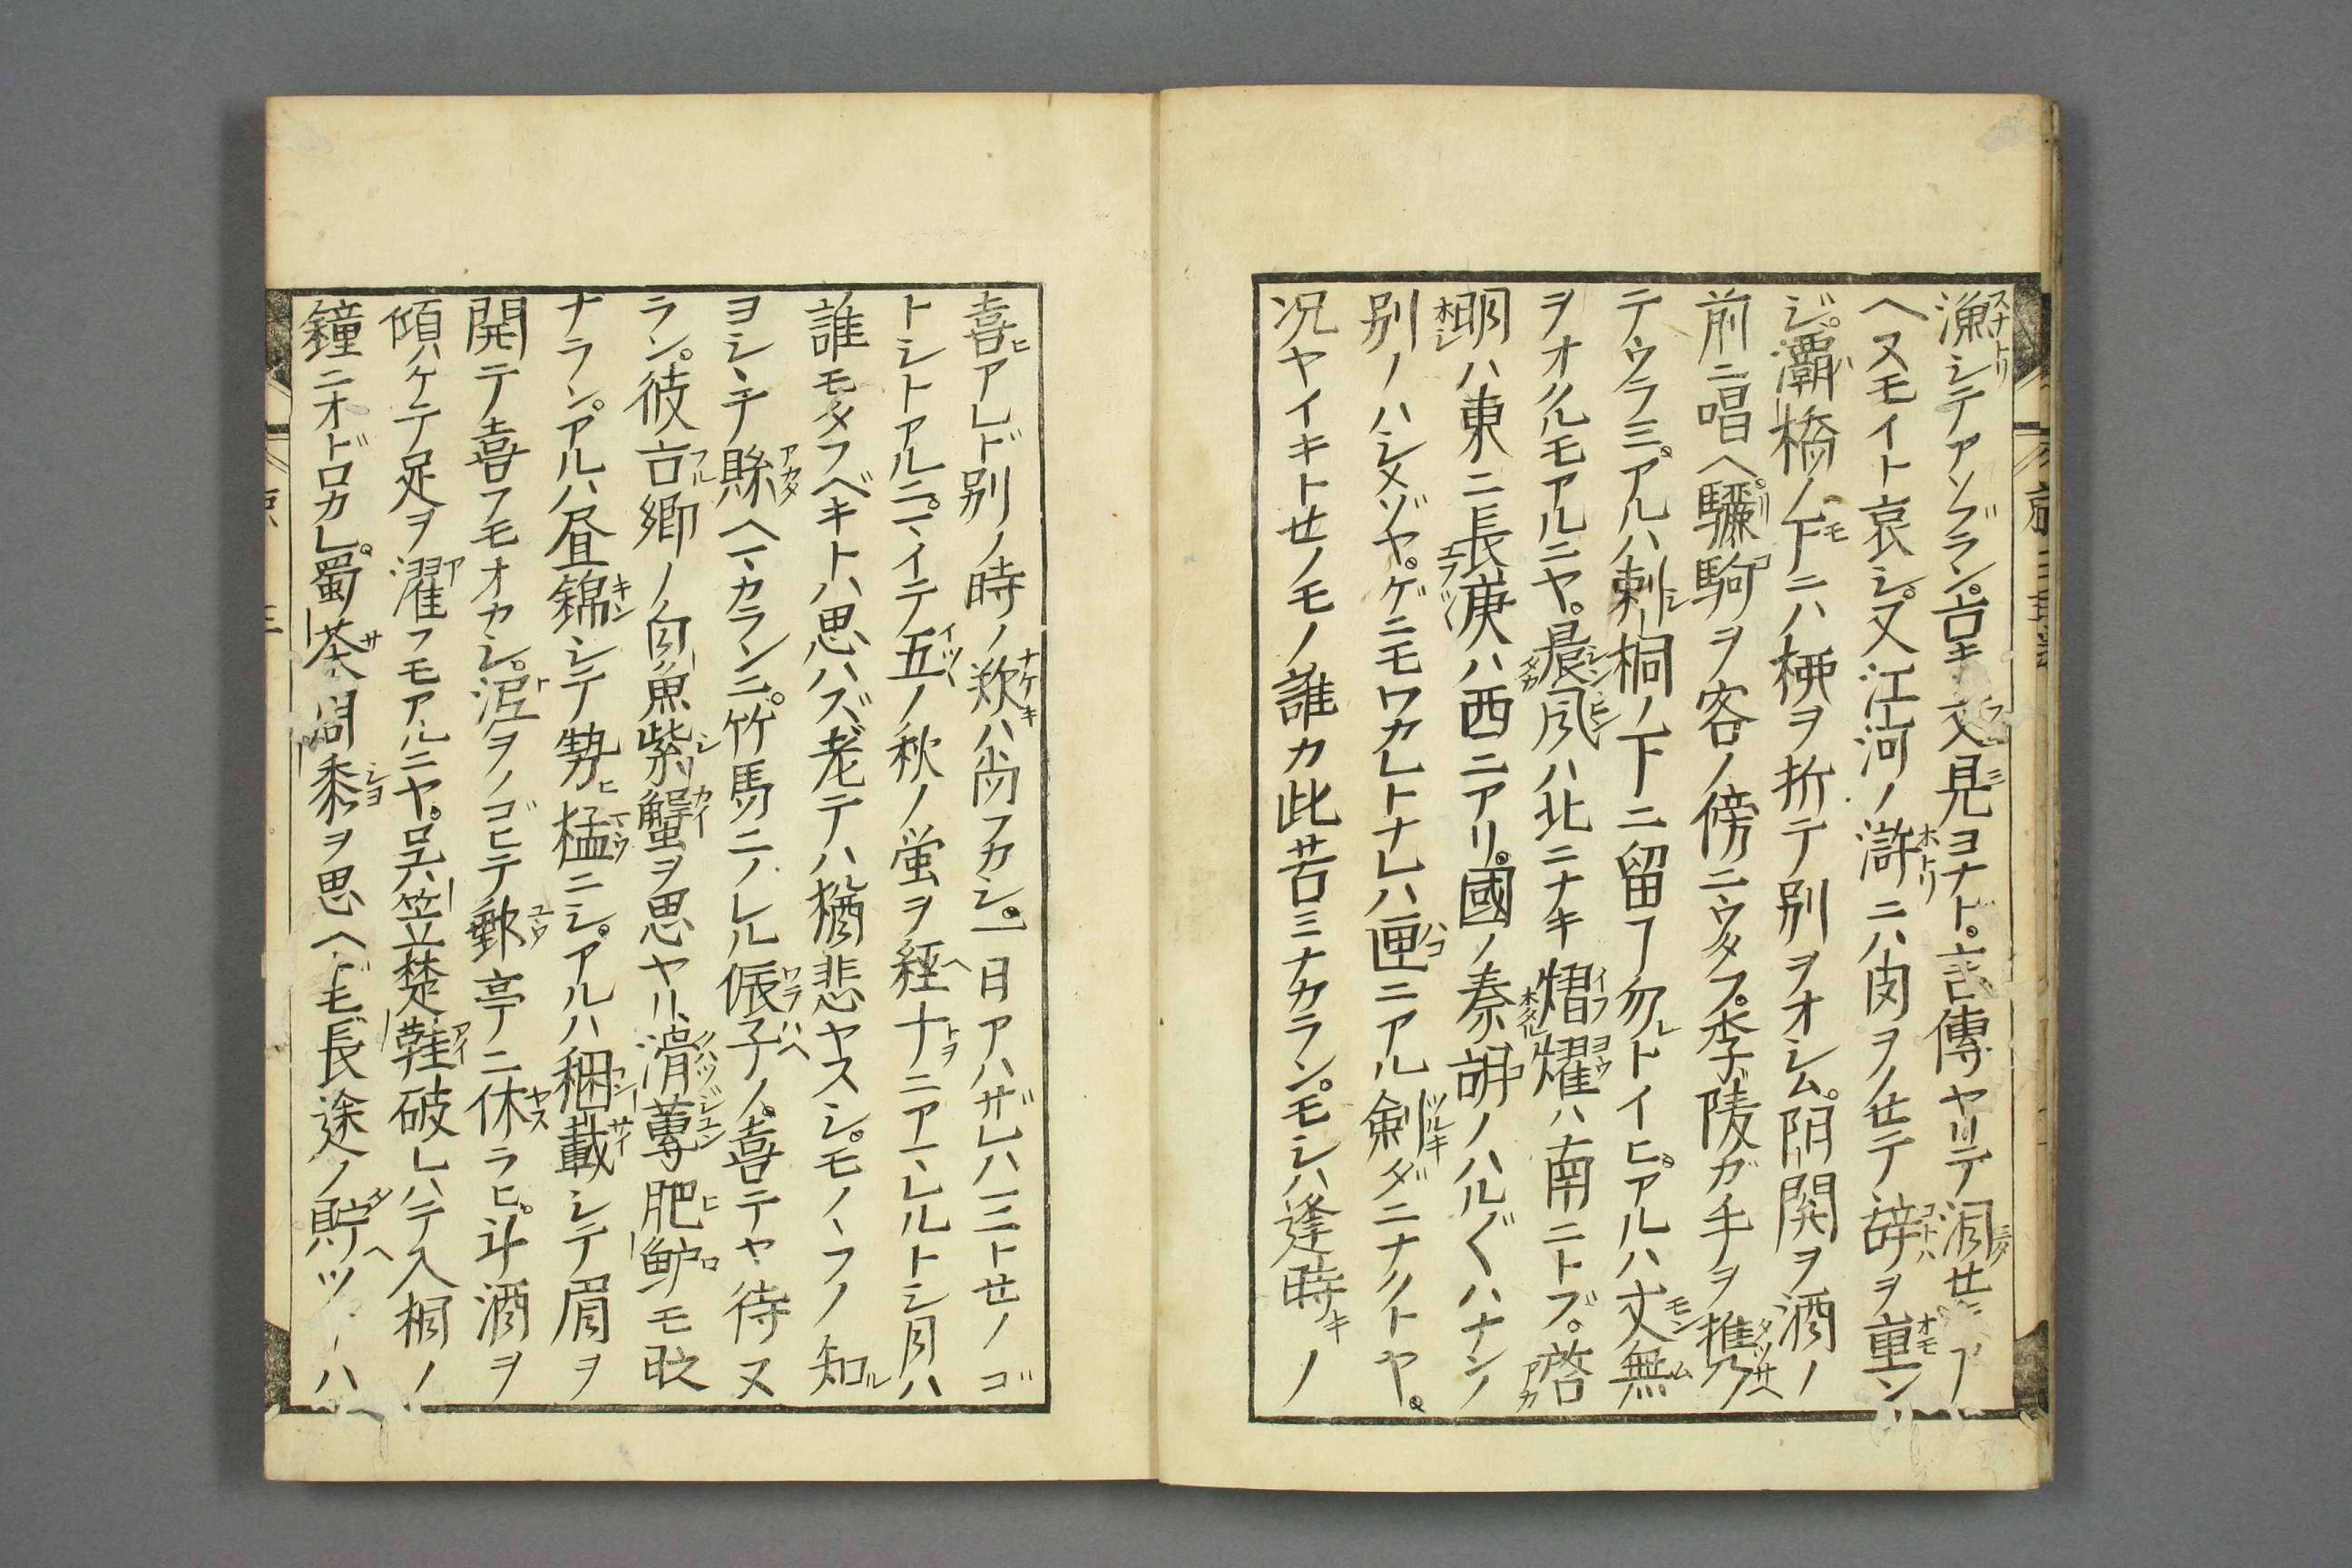 漁シテアソブラン。古キ文見ヨナド。言傳ヤリテ涙せ
ヘヌモイト哀シ。又江河ノ滸ニハ肉ヲノせテ辞ヲ重ン
ジ。灞橋ノ下ニハ柳ヲ折テ別ヲオシム。陽関ヲ酒ノ
前ニ唱ヘ。驪駒ヲ客ノ傍ニウタフ。李陵ガ手ヲ携
テウラミ。アルハ刺桐ノ下ニ留コ勿レトイヒ。アルハ文無
ヲオクルモアルニヤ。晨風ハ北ニナキ熠燿ハ南ニトブ。啓
明ハ東ニ長庚ハ西ニアリ。國ノ秦胡ノハル〲ハナシノ
別ノハシメゾヤ。ゲニモワカレトナレハ匣ニアル剣ダニナクトヤ。
况ヤイキトせノモノ誰カ此苦ミナカラン。モシハ逢時ノ
喜アレド別ノ時ノ歎ハ尚フカシ。一日アハザレハ三トせノゴ
トシトアルニ。マイテ五ノ秋ノ蛍ヲ経十ニアマレルトシ月ハ
誰モタフベキトハ思ハズ老テハ猶悲ヤスシ。モノヽフノ知
ヨシヽテ縣ヘマカランニ。竹馬ニノレル侲子ノ。喜テヤ待ヌ
ラン。彼古郷ノ白魚紫蟹ヲ思ヤリ、滑蓴肥鱸モ旼
ナラン。アルハ昼錦シテ勢猛ニシ。アルハ稛載シテ眉ヲ
開テ喜フモオカシ。泥ヲノゴヒテ郵亭ニ休ラヒ。斗酒ヲ
傾ケテ足ヲ濯フモアルニヤ。呉笠楚鞋破レハテ入相ノ
鐘ニオドロカレ。蜀茶周黍ヲ思ヘドモ長途ノ貯ツ